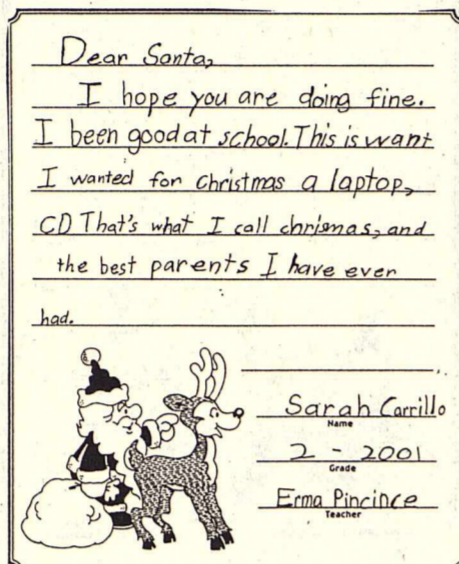 Dear Santa,
I hope you are doing fine.
I been good at school. This is want
I wanted for christmas a laptop,
CD That's what I call chrismas, and
the best parents I have ever
had.
Sarah Carrillo
Name
2 - 2001
Grade
Erma Pincince
Teacher